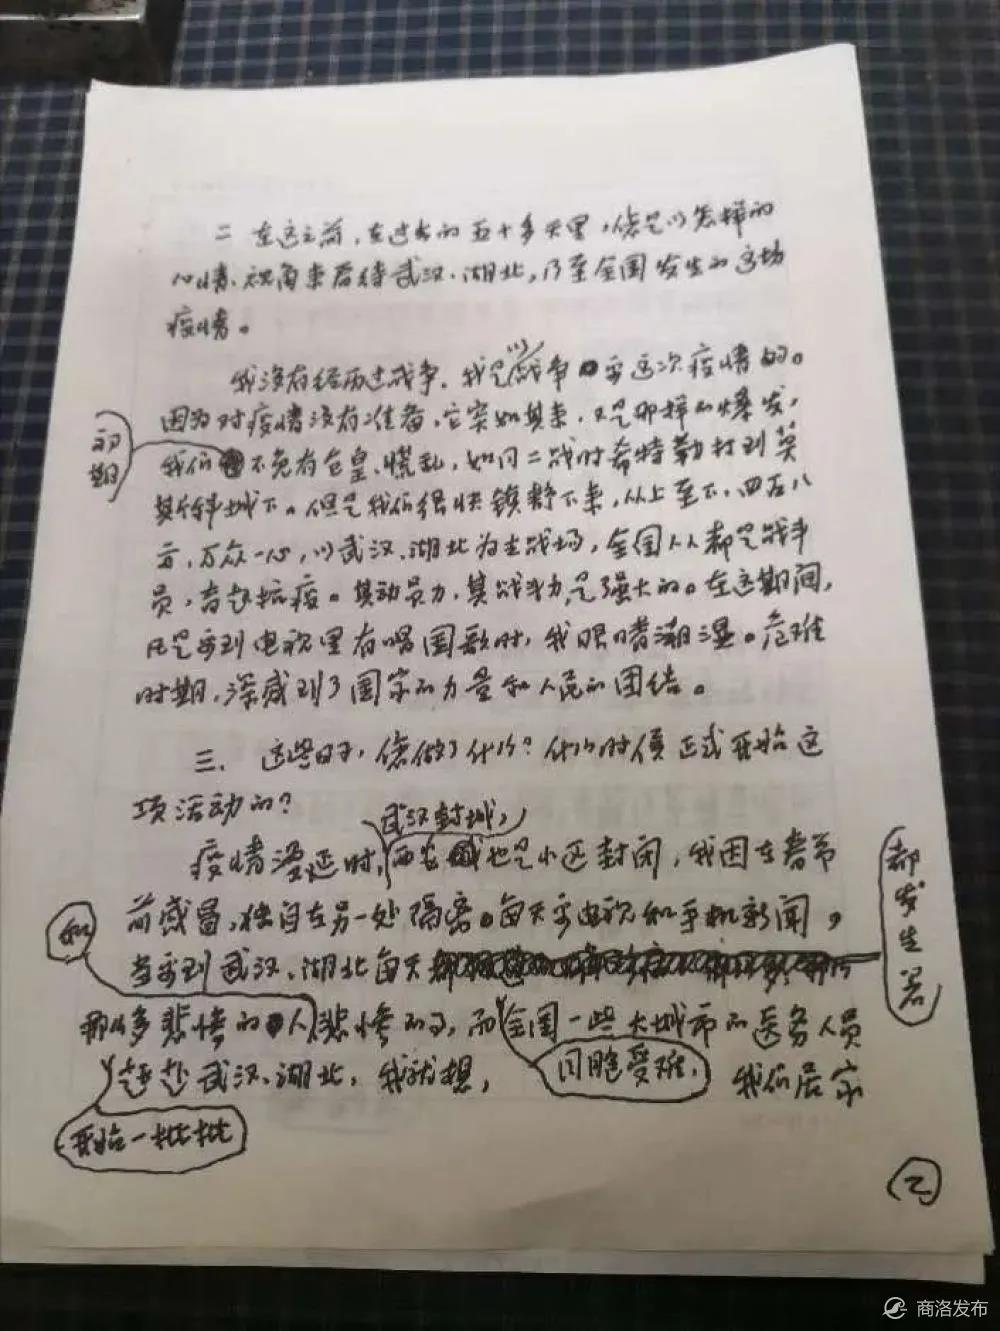 二 在这之前,在过去的五十多天里,您是以怎样的
心情、视角来看待武汉、湖北,乃至全国发生的这场
疫情。
我没有经历过战争,我是以战争看这次疫情的。
因为对疫情没有准备,它突如其来,又是那样的爆发,
初期
我们不免有仓皇、慌乱,如同二战时希特勒打到莫
斯科城下。但是我们很快镇静下来,从上至下,四面八
方,万众一心,以武汉、湖北为主战场,全国人人都是战斗
员,奋起抗疫。其动员力,其战斗力是强大的。在这期间,
凡是看到电视里有唱国歌时,我眼睛潮湿。危难
时期,深感到了国家的力量和人民的团结。
三、这些日子,您做了什么?什么时候正式开始这
项活动的?
武汉封城,
疫情漫延时,西安也是小区封闭,我因在春节
都发生着
前感冒,独自在另一处隔离。每天看电视和手机新闻,
和
当看到武汉、湖北每天
那么多悲惨的人悲惨的事,而全国一些大城市的医务人员
同胞受难,
赶赴武汉、湖北,我就想,我们居家
开始一批批
二
商洛发布